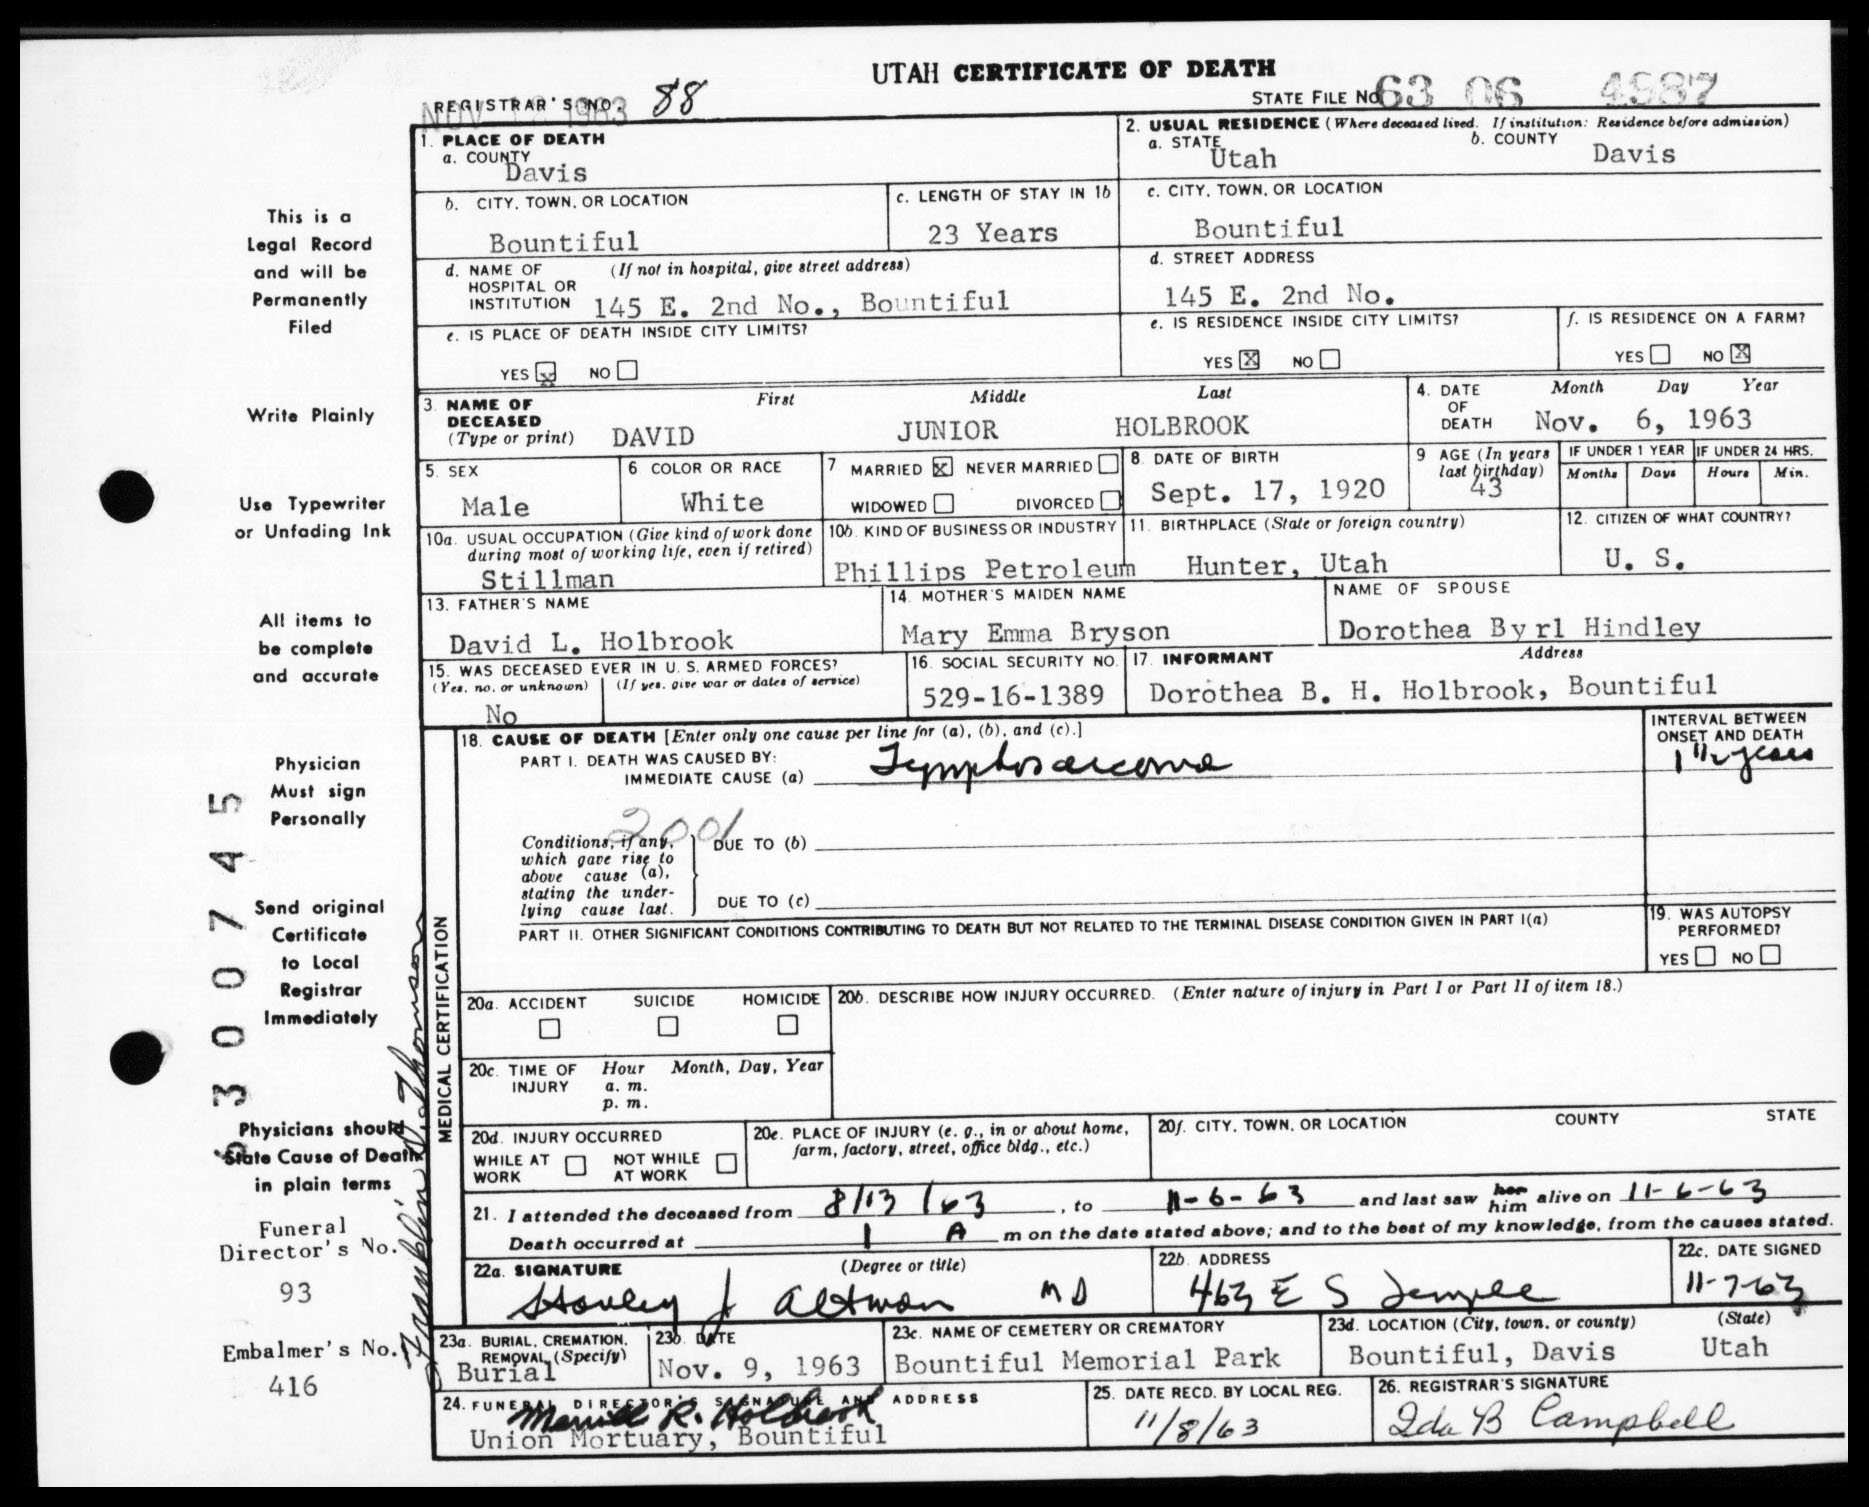 UTAH CERTIFICATE OF DEATH
REGISTRAR'S NO. 88
NOV 12 1963
STATE FILE NO. 63 06 4987
1. PLACE OF DEATH
a. COUNTY
Davis
2. USUAL RESIDENCE (Where deceased lived. If institution: Residence before admission)
a. STATE
Utah
b. COUNTY
Davis
b. CITY, TOWN, OR LOCATION
Bountiful
c. LENGTH OF STAY IN 1b
23 Years
c. CITY, TOWN, OR LOCATION
Bountiful
d. NAME OF HOSPITAL OR INSTITUTION (If not in hospital, give street address)
145 E. 2nd No., Bountiful
d. STREET ADDRESS
145 E. 2nd No.
e. IS PLACE OF DEATH INSIDE CITY LIMITS?
YES X NO
e. IS RESIDENCE INSIDE CITY LIMITS?
YES X NO
f. IS RESIDENCE ON A FARM?
YES NO X
3. NAME OF DECEASED (Type or print)
First Middle Last
DAVID JUNIOR HOLBROOK
4. DATE OF DEATH
Month Day Year
Nov. 6, 1963
5. SEX
Male
6. COLOR OR RACE
White
7. MARRIED X NEVER MARRIED
WIDOWED DIVORCED
8. DATE OF BIRTH
Sept. 17, 1920
9 AGE (In years last birthday)
43
IF UNDER 1 YEAR
Months Days
IF UNDER 24 HRS.
Hours Min.
10a. USUAL OCCUPATION (Give kind of work done during most of working life, even if retired)
Stillman
10b. KIND OF BUSINESS OR INDUSTRY
Phillips Petroleum
11. BIRTHPLACE (State or foreign country)
Hunter, Utah
12. CITIZEN OF WHAT COUNTRY?
U. S.
13. FATHER'S NAME
David L. Holbrook
14. MOTHER'S MAIDEN NAME
Mary Emma Bryson
NAME OF SPOUSE
Dorothea Byrl Hindley
15. WAS DECEASED EVER IN U. S. ARMED FORCES?
(Yes, no, or unknown) (If yes, give war or dates of service)
No
16. SOCIAL SECURITY NO.
529-16-1389
17. INFORMANT Address
Dorothea B. H. Holbrook, Bountiful
MEDICAL CERTIFICATION
18. CAUSE OF DEATH [Enter only one cause per line for (a), (b), and (c).]
PART I. DEATH WAS CAUSED BY:
IMMEDIATE CAUSE (a) Lymphosarcoma
INTERVAL BETWEEN ONSET AND DEATH
1 1/2 years
2001
Conditions, if any, which gave rise to above cause (a), stating the underlying cause last.
DUE TO (b)
DUE TO (c)
PART II. OTHER SIGNIFICANT CONDITIONS CONTRIBUTING TO DEATH BUT NOT RELATED TO THE TERMINAL DISEASE CONDITION GIVEN IN PART I(a)
19. WAS AUTOPSY PERFORMED?
YES NO
20a. ACCIDENT SUICIDE HOMICIDE
20b. DESCRIBE HOW INJURY OCCURRED. (Enter nature of injury in Part I or Part II of item 18.)
20c. TIME OF INJURY
Hour Month, Day, Year
a. m.
p. m.
20d. INJURY OCCURRED
WHILE AT WORK NOT WHILE AT WORK
20e. PLACE OF INJURY (e. g., in or about home, farm, factory, street, office bldg., etc.)
20f. CITY, TOWN, OR LOCATION COUNTY STATE
21. I attended the deceased from 8/13/63, to 11-6-63 and last saw her him alive on 11-6-63
Death occurred at 1 A m on the date stated above; and to the best of my knowledge, from the causes stated.
22a. SIGNATURE (Degree or title)
Stanley J Altman MD
22b. ADDRESS
463 E S Temple
22c. DATE SIGNED
11-7-63
23a. BURIAL, CREMATION, REMOVAL (Specify)
Burial
23b. DATE
Nov. 9, 1963
23c. NAME OF CEMETERY OR CREMATORY
Bountiful Memorial Park
23d. LOCATION (City, town, or county) (State)
Bountiful, Davis Utah
24. FUNERAL DIRECTOR'S SIGNATURE AND ADDRESS
Merrill R. Holbrook
Union Mortuary, Bountiful
25. DATE RECD. BY LOCAL REG.
11/8/63
26. REGISTRAR'S SIGNATURE
Ida B Campbell
This is a
Legal Record
and will be
Permanently
Filed
Write Plainly
Use Typewriter
or Unfading Ink
All items to
be complete
and accurate
Physician
Must sign
Personally
Send original
Certificate
to Local
Registrar
Immediately
Physicians should
State Cause of Death
in plain terms
Funeral
Director's No.
93
Embalmer's No.
416
300745
Franklin D. Thomson